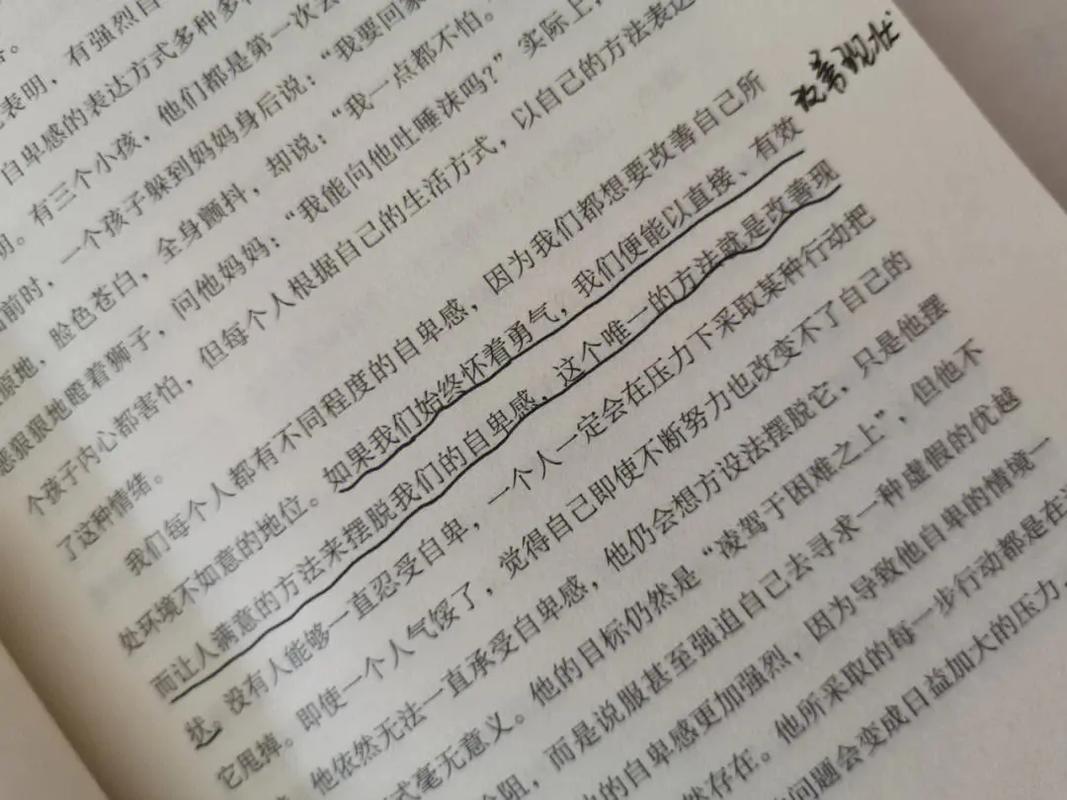 表明，有强烈自
自卑感的表达方式多种多
明。有三个小孩，他们都是第一次去
前时，一个孩子躲到妈妈身后说：“我要回家
地，脸色苍白，全身颤抖，却说：“我一点都不怕。
恶狠狠地瞪着狮子，问他妈妈：“我能向他吐唾沫吗？”实际上，
个孩子内心都害怕，但每个人根据自己的生活方式，以自己的方法表达
了这种情绪。
改善现状
我们每个人都有不同程度的自卑感，因为我们都想要改善自己所
处环境不如意的地位。如果我们始终怀着勇气，我们便能以直接、有效
而让人满意的方法来摆脱我们的自卑感，这个唯一的方法就是改善现
状。没有人能够一直忍受自卑，一个人一定会在压力下采取某种行动把
它甩掉。即使一个人气馁了，觉得自己即使不断努力也改变不了自己的
，他依然无法一直承受自卑感，他仍会想方设法摆脱它，只是他摆
式毫无意义。他的目标仍然是“凌驾于困难之上”，但他不
阻，而是说服甚至强迫自己去寻求一种虚假的优越
的自卑感更加强烈，因为导致他自卑的情境一
然存在。他所采取的每一步行动都是在
问题会变成日益加大的压力，